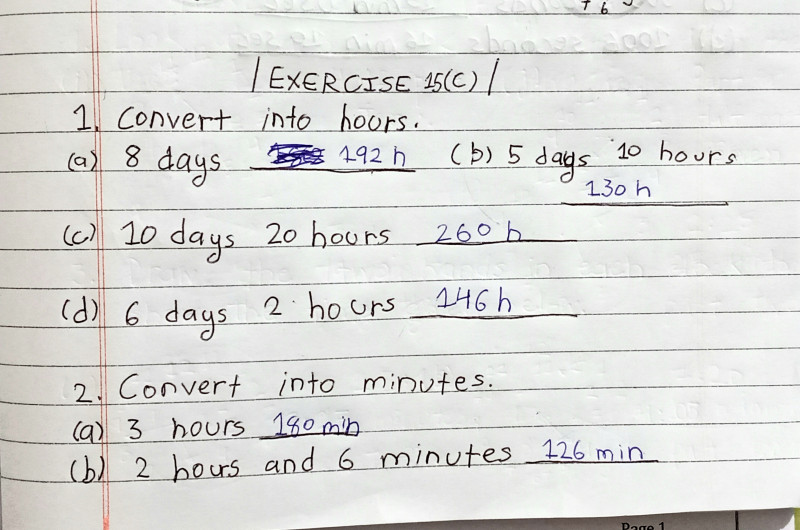 EXERCISE 15(C)
1. Convert into hours.
(a) 8 days 192 h (b) 5 days 10 hours
130 h
(c) 10 days 20 hours 260 h
(d) 6 days 2 hours 146 h
2. Convert into minutes.
(a) 3 hours 180 min
(b) 2 hours and 6 minutes 126 min
Page 1